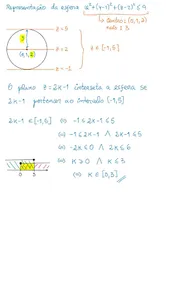 Representação da esfera x²+(y-1)²+(z-2)² ≤ 9
→ Centro: (0,1,2)
raio: 3
z = 5
3
z = 2
z ∈ [-1,5]
(0,1,2)
z = -1
O plano z = 2k-1 interseta a esfera se
2k-1 pertencer ao intervalo [-1,5]
2k-1 ∈ [-1,5] (⇔) -1 ≤ 2k-1 ≤ 5
(⇔) -1 ≤ 2k-1 ∧ 2k-1 ≤ 5
(⇔) -2k ≤ 0 ∧ 2k ≤ 6
(⇔) k ≥ 0 ∧ k ≤ 3
(⇔) k ∈ [0,3]
0 3